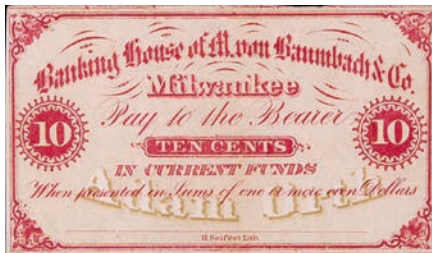 Banking House of M. von Baumbach & Co.
Milwaukee
Pay to the Bearer
10 TEN CENTS 10
IN CURRENT FUNDS
When presented in Sums of one or more even Dollars
Adam Orth
H. Seifert Lith